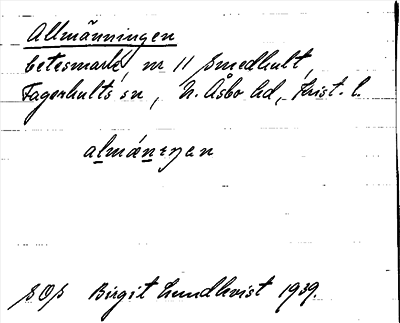 Allmänningen
betesmark, nr 11 Smedhult,
Fagerhults sn, N. Åsbo hd, Krist. l.
almänıŋen
SOS Birgit Lundkvist 1939.